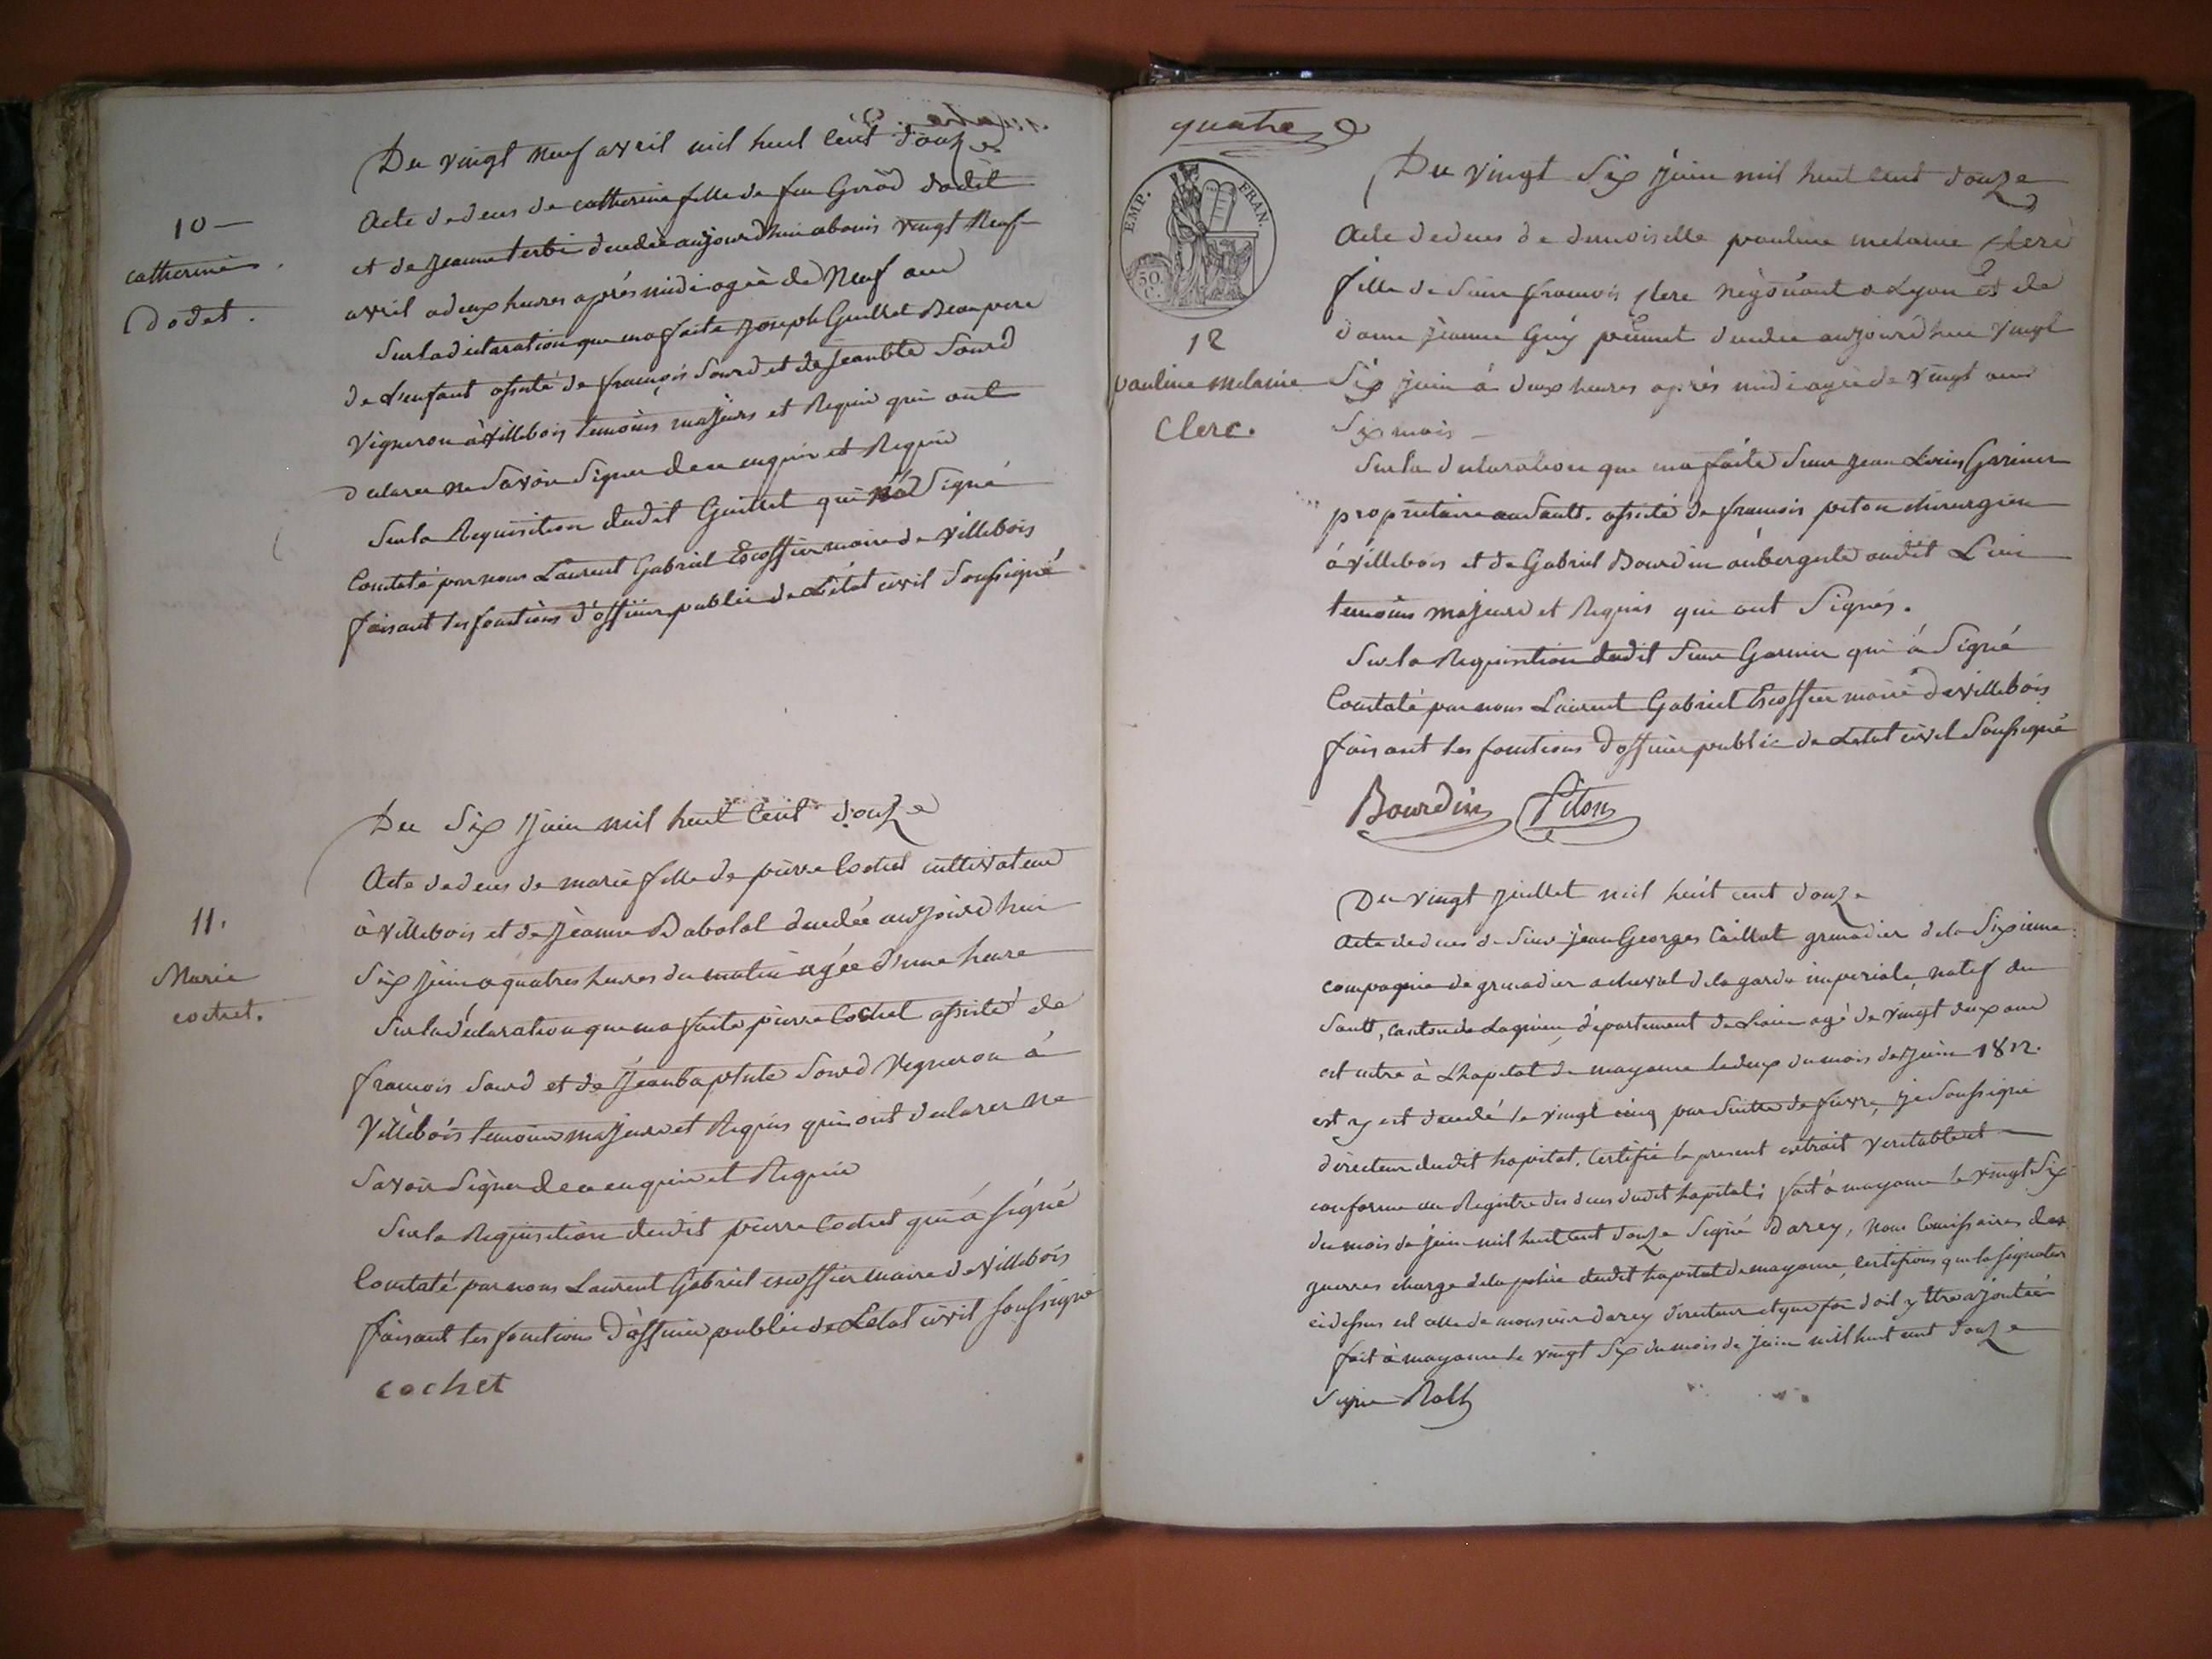 Du vingt neuf avril mil huit cent douze
10 —
catherine
Dodet.
Acte de deces de catherine fille de feu dodet
et de jeanne decedée aujourdhui vingt Neuf
avril a deux heures après midi agée de Neuf ans
Sur la declaration que ma faite joseph Guillet Beaupere
de l'enfant assisté de françois Sourd et de jean bte Sourd
Vigneron à villebois temoins majeurs et Requis qui ont
declarer ne Savoir Signer de ce enquis et Requis
Sur la Requisition dudit Guillet qui Signé
Constaté par nous Laurent Gabriel Escoffier maire de villebois
faisant les fonctions d'officier public de L'état civil Soussigné
Du Six juin mil huit Cent douze
11.
Marie
cochet.
Acte de deces de marie fille de pierre Cochet cultivateur
à villebois et de jeanne Babolat decedée aujourdhui
Six juin a quatres heures du matin agée d'une heure
Sur la déclaration que ma faite pierre Cochet assisté de
francois Sourd et de jean baptiste Sourd Vigneron à
Villebois temoins majeurs et Requis qui ont declarer ne
Savoir Signer de ce enquis et Requis
Sur la Requisition dudit pierre Cochet qui a signé
Constaté par nous Laurent Gabriel escoffier maire de villebois
faisant les fonctions d'officier public de L'etat civil soussigné
cochet
quatre
EMP. FRAN.
50 C.
Du vingt Six juin mil huit cent douze
12
pauline melanie
Clerc.
Acte de deces de demoiselle pauline melanie Clerc
fille de Sieur francois Clerc négociant a Lyon et de
dame jeanne Guy decedée aujourdhui vingt
Six juin à deux heures après midi agée de vingt ans
Six mois —
Sur la declaration que ma faite Sieur jean Louis Garnier
proprietaire au Sault. assisté de francois piton chirurgien
à villebois et de Gabriel Bourdin aubergiste audit Lieu
temoins majeurs et Requis qui ont Signés.
Sur la Requisition dudit Sieur Garnier qui à Signé
Constaté par nous Laurent Gabriel Escoffier maire de villebois
faisant les fonctions d'officier public de L'etat civil Soussigné
Bourdin Piton
Du vingt juillet mil huit cent douze
Acte de deces de Sieur jean Georges Caillat grenadier de la Sixieme
compagnie de grenadier a cheval de la garde imperiale, natif du
Sault, canton de Lagnieu, département de L'ain agé de vingt deux ans
est entré à L'hopital de mayance le deux du mois de juin 1812.
est y est decedé le vingt cinq par Suitte de fievre, je Soussigné
directeur dudit hopital. Certifie le present extrait veritable et
conforme au Registre des deces dudit hopital; fait à mayance le vingt Six
du mois de juin mil huit cent douze Signé Darcy, Nous Comissaires des
guerres chargé de la police dudit hopital de mayance, Certifions que la signature
ci dessus est celle de monsieur darcy directeur et que foi doit y être ajoutée
fait à mayance le vingt Six du mois de juin mil huit cent douze
Signé